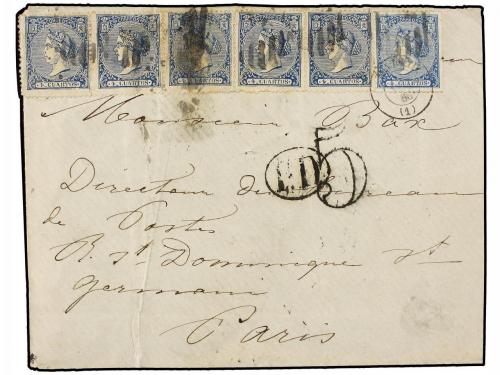 4 CUARTOS 4 CUARTOS 4 CUARTOS 4 CUARTOS 4 CUARTOS 4 CUARTOS
(1)
Monsieur Bax
5
P.D
Directeur du Bureau
de Postes
R. St Dominique St
Germain
Paris